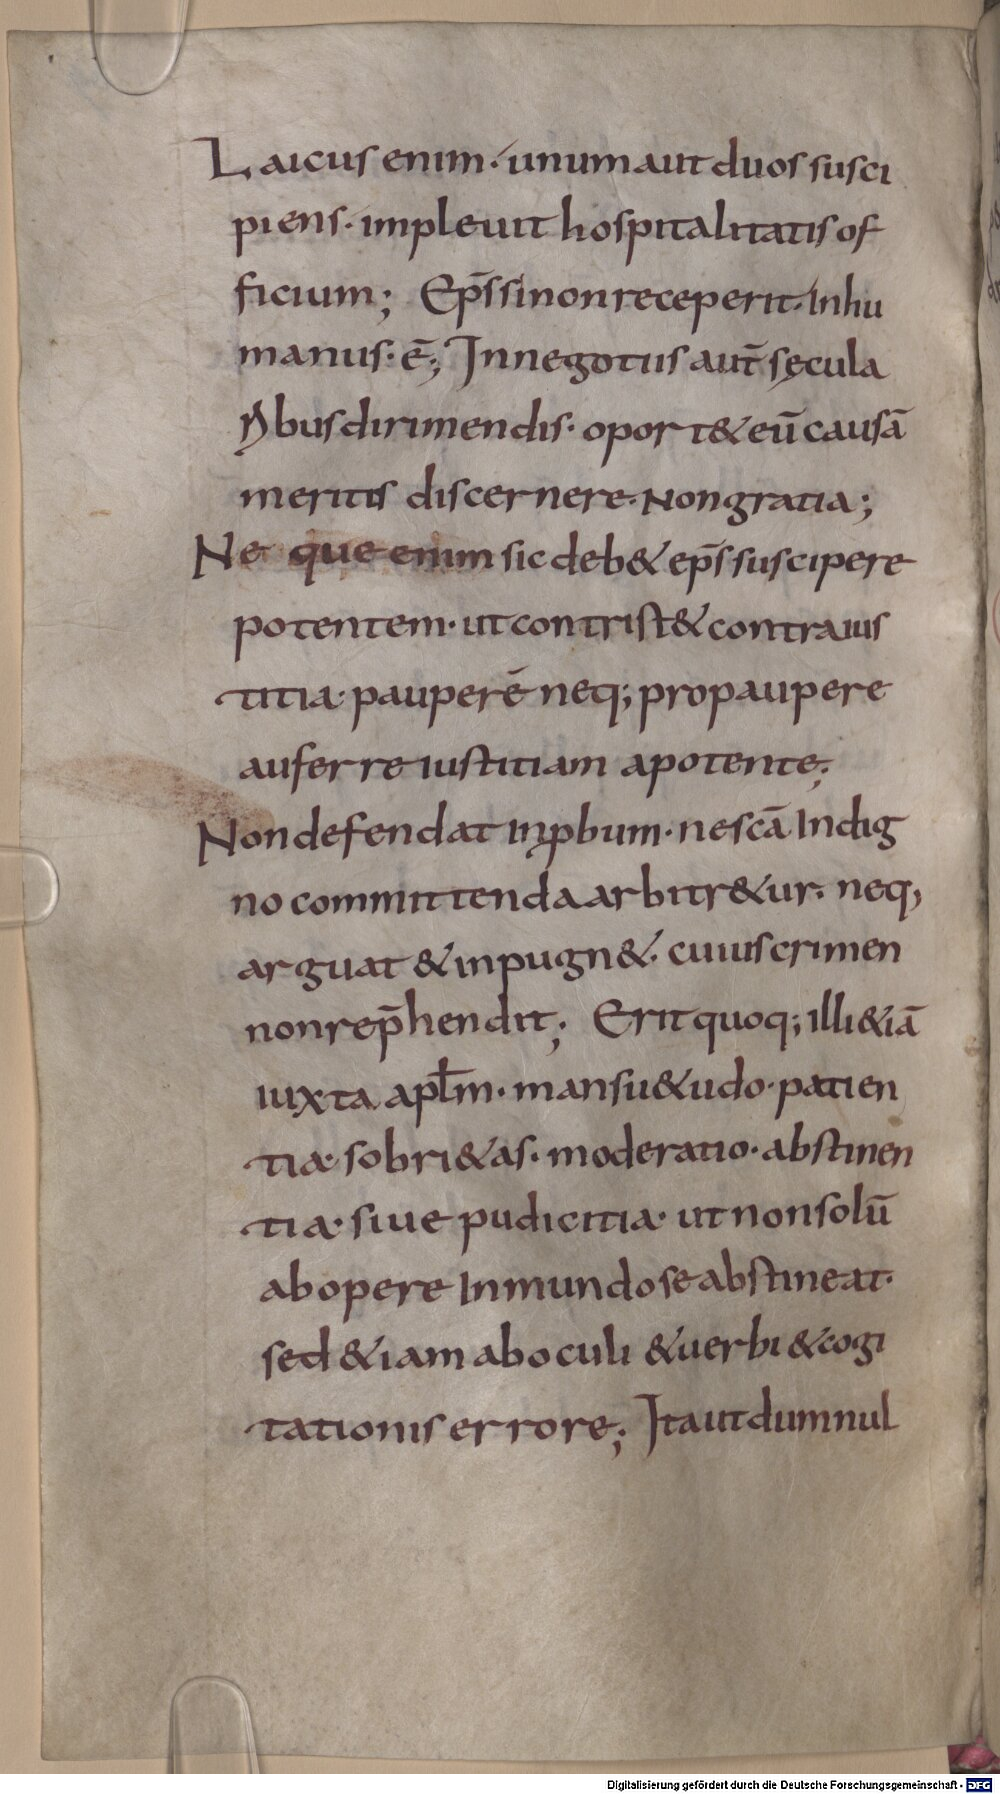 Laicus enim · unum aut duos susci
piens · impleuit hospitalitatis of
ficium; Ep̄s si non receperit · inhu
manus · ē; In negotiis aut̄ sęcula
ribus dirimendis · oport& eū causā
meritis discernere · Non gratia;
Neque enim sic deb& ep̄s suscipere
potentem · ut contrist& contra ius
titia · pauperē neq; pro paupere
auferre iustitiam a potente;
Non defendat inꝓbum · ne scā indig
no committenda arbitr&ur · neq;
arguat & inpugn& · cuius crimen
non rep̄hendit; Erit quoq; illi &iā
iuxta apl̄m · mansu&udo · patien
tia · sobri&as · moderatio · abstinen
tia · siue pudicitia · ut non solū
ab opere inmundo se abstineat ·
sed &iam ab oculi & uerbi & cogi
tationis errore; Ita ut dum nul
Digitalisierung gefördert durch die Deutsche Forschungsgemeinschaft - DFG